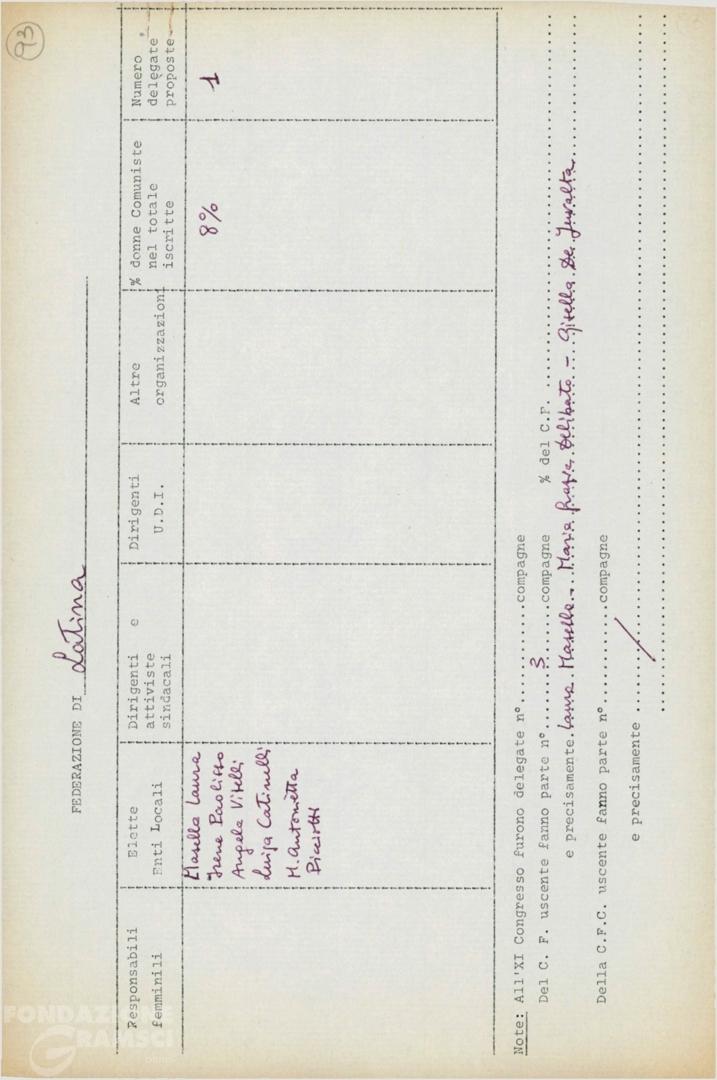 93
FEDERAZIONE DI Latina
Responsabili femminili
Elette Enti Locali
Dirigenti e attiviste sindacali
Dirigenti U.D.I.
Altre organizzazioni
% donne Comuniste nel totale iscritte
Numero delegate proposte
Masella Laura
Irene Paolisso
Angela Vitelli
Luisa Catinelli
M. Antonietta
Picciotti
8%
1
Note: All'XI Congresso furono delegate n°...........compagne
Del C. F. uscente fanno parte n°.......3......compagne % del C.F. ..........
e precisamente Laura Masella - Maria Grazia Delibato - Gisella De Juvalta
Della C.F.C. uscente fanno parte n°...........compagne
e precisamente ........../..........
FONDAZIONE
GRAMSCI